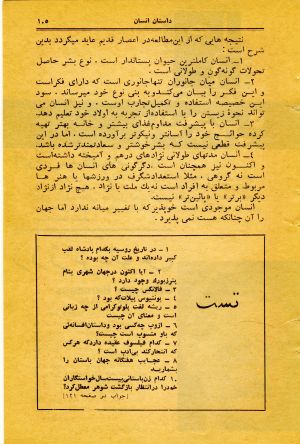 داستان انسان
۱۰۵
نتیجه هایی که از این مطالعه در اعصار قدیم عاید میگردد بدین
شرح است :
۱ـ انسان کاملترین حیوان پستاندار است . نوع بشر حاصل
تحولات گونه‌گون و طولانی است .
۲ـ انسان میان جانوران تنها جانوری است که دارای فکر است
و این فکر را بیان می‌کند و به بنی نوع خود میرساند . سود
این خصیصه استفاده و تکمیل تجارب اوست . و نیز انسان می
تواند نحوه زیستن را با استفاده از تجربه به اولاد خود تعلیم دهد.
۳ـ انسان با پیشرفت مداوم غذای بیشتر و خانه بهتر تهیه
کرده حوائج خود را آسانتر و نیکوتر برآورده است . اما در این
پیشرفت قطعی نیست که بشر خوشتر و سعادتمندتر شده باشد.
۴ـ انسان مدتهای طولانی نژادهای درهم و آمیخته داشته است
و اکنون نیز همچنان است . دگرگونی های انسان ها فردی
است نه گروهی . مثلا استعداد شگرف در ورزشها یا هنر ها
مربوط و متعلق به افراد است نه یك ملت یا نژاد . هیچ نژاد از نژاد
دیگر «برتر» یا «پائین‌تر» نیست.
انسان موجودی است خودپذیر که با تغییر میانه ندارد اما جهان
را آن چنانکه هست نمی پذیرد .
تست
۱ ـ در تاریخ روسیه بکدام پادشاه لقب
کبیر داده‌اند و علت آن چه بوده ؟
۲ ـ آیا اکنون در جهان شهری بنام
پترزبورگ وجود دارد ؟
۳ ـ فالانکس چیست ؟
۴ ـ پونتیوس پیلات که بود ؟
۵ ـ ریشه لغت پلوتوکراسی از چه زبانی
است و معنای آن چیست
۶ ـ ازوپ چه کسی بود و داستان افسانه‌ئی
که باو منسوب است چیست؟
۷ ـ کدام فیلسوف عقیده دارد که هر کس
که انتحار کند بی‌ادب است ؟
۸ ـ عجایب هفتگانه جهان باستان را
بشمارید.
۱۰ کدام زن باستانی بیست سال خواستگاران
خود را در انتظار بازگشت شوهر معطل کرد؟
[جواب در صفحه ۱۲۱]